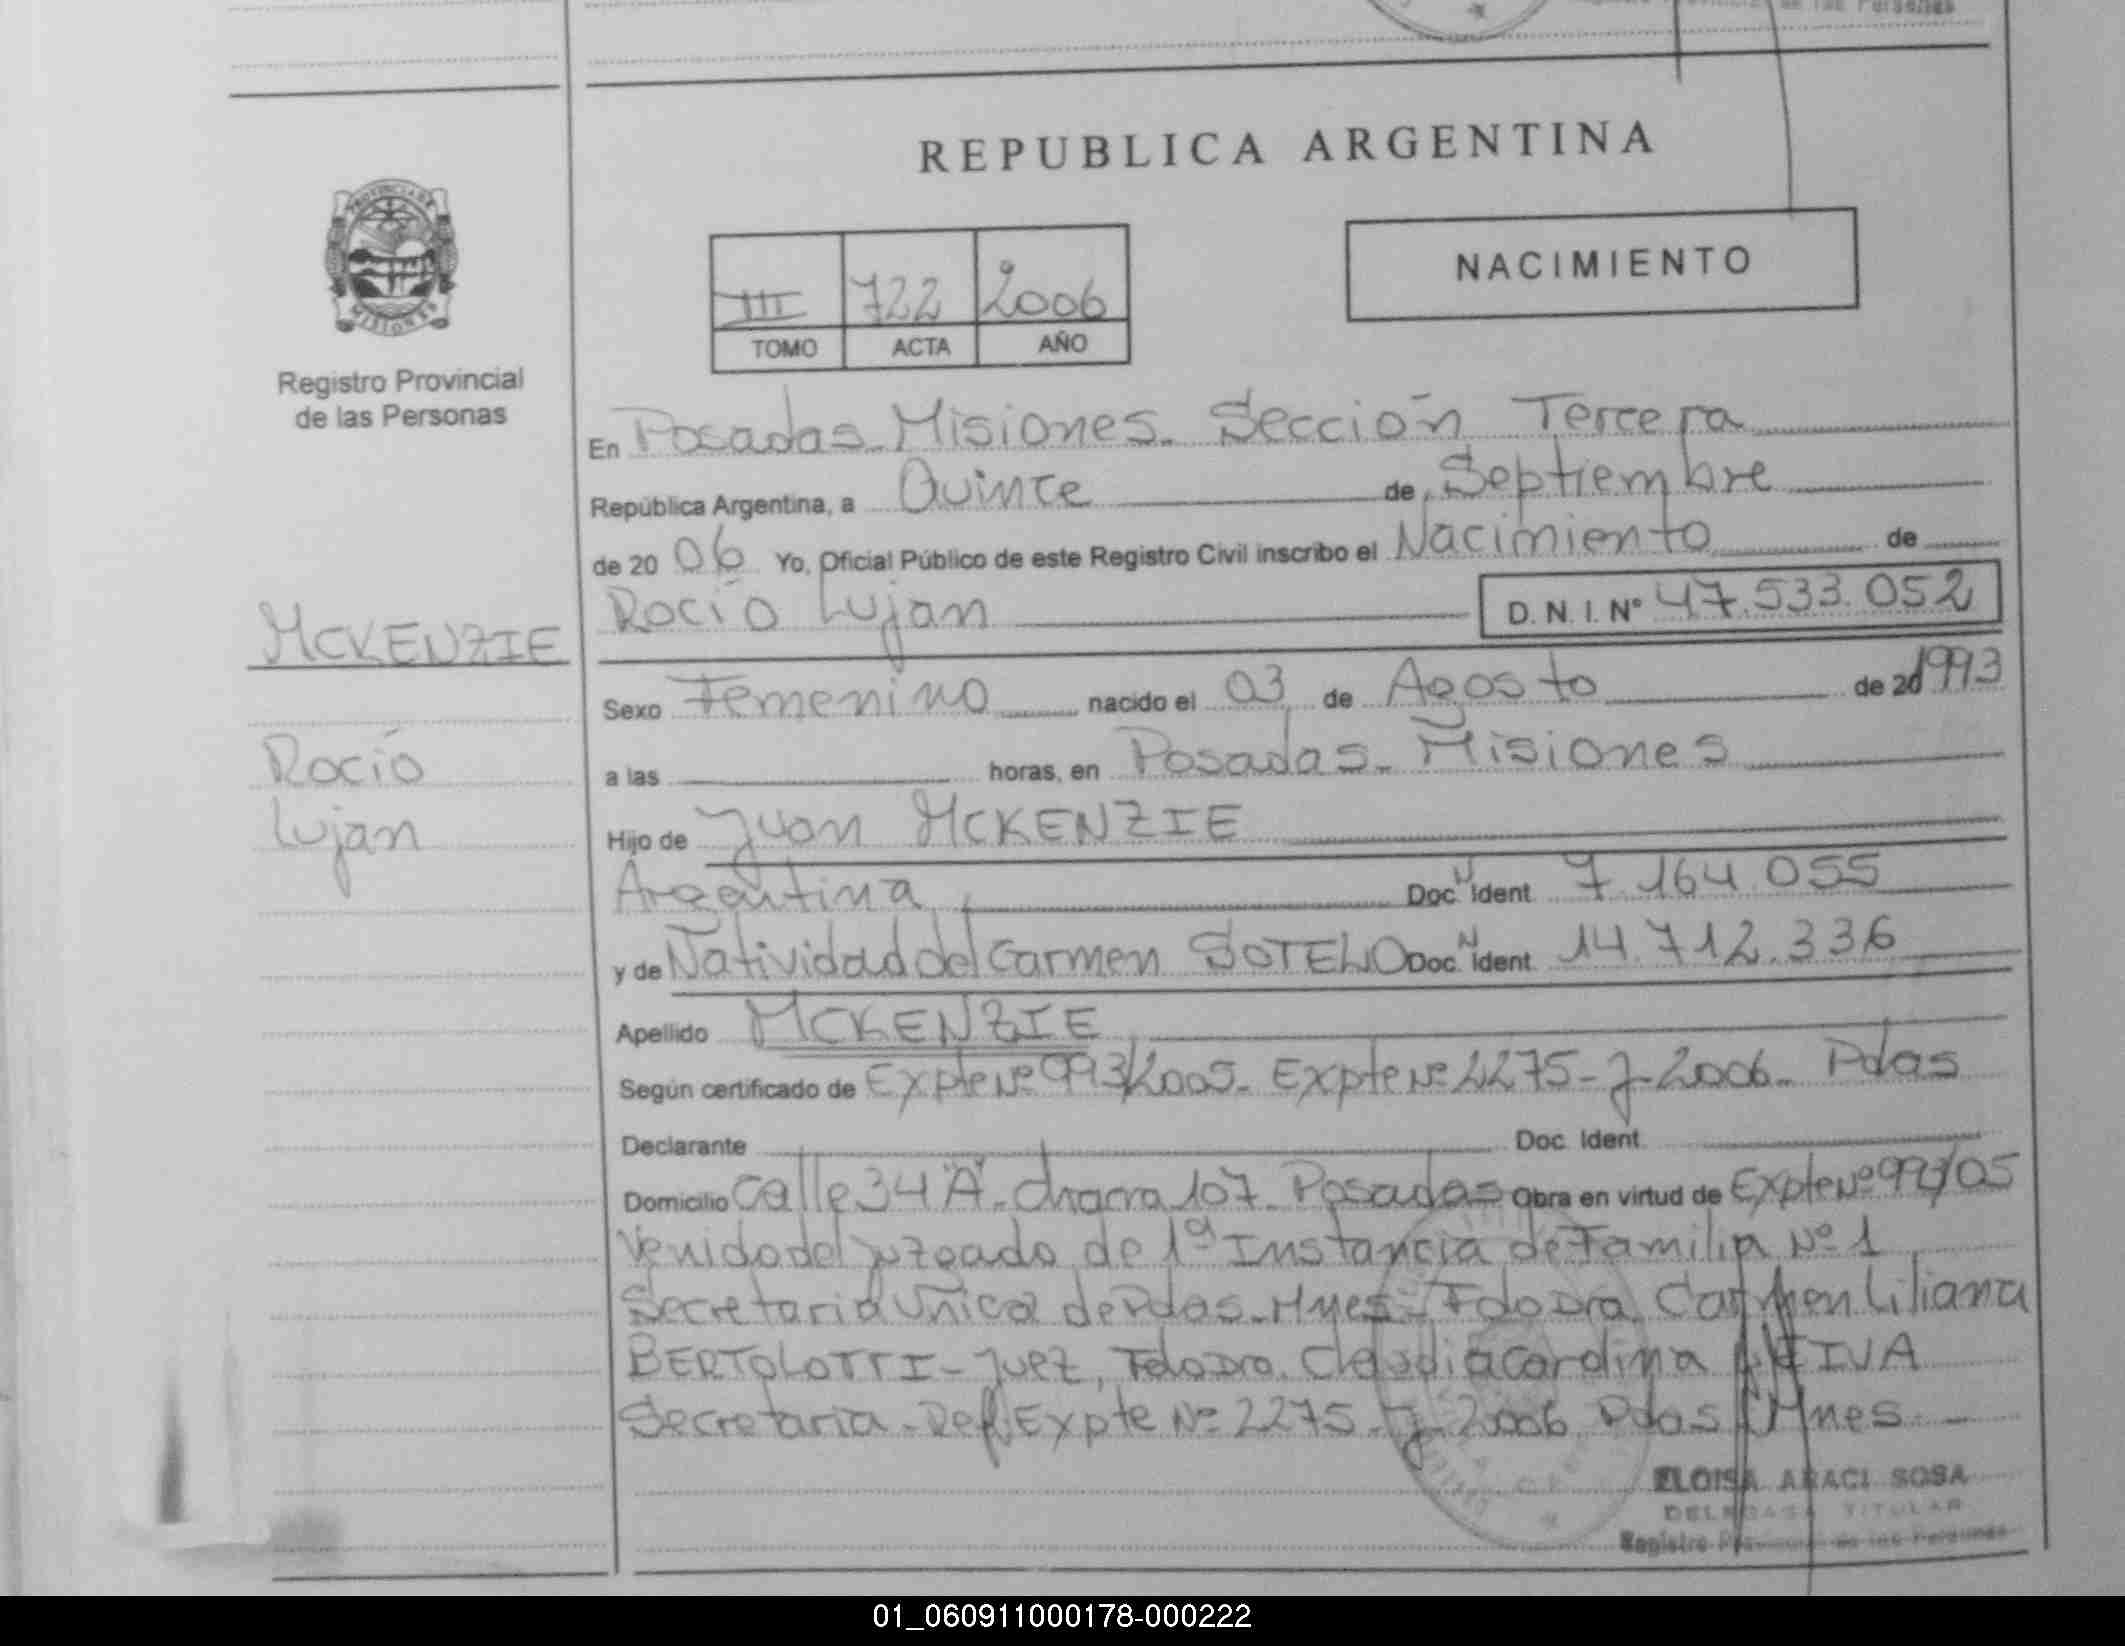 de las Personas
REPUBLICA ARGENTINA
PROVINCIA DE
MISIONES
Registro Provincial
de las Personas
NACIMIENTO
III 722 2006
TOMO ACTA AÑO
En Posadas Misiones. Sección Tercera
República Argentina, a Quince de Septiembre
de 20 06 Yo, Oficial Público de este Registro Civil inscribo el Nacimiento de
MCKENZIE
Rocío Lujan D.N.I.Nº 47.533.052
Sexo Femenino nacido el 03 de Agosto de 20 1993
Rocío
a las horas, en Posadas - Misiones
Lujan
Hijo de Juan MCKENZIE
Argentina Doc. N Ident. 7.164.055
y de Natividad del Carmen SOTELO Doc. N Ident. 14.712.336
Apellido MCKENZIE
Según certificado de Expte Nº 993/2005 - Expte Nº 2275-J-2006 - Pdas
Declarante Doc. Ident.
Domicilio Calle 34 "A" - Chacra 107 - Posadas Obra en virtud de Expte Nº 993/05
Venido del Juzgado de 1ª Instancia de Familia Nº 1
Secretaria Única de Pdas - Mnes - Fdo Dra. Carmen Liliana
BERTOLOTTI - Juez, Fdo Dra. Claudia Carolina
Secretaria - Ref. Expte Nº 2275 - J - 2006 Pdas Mnes
ELOISA ARACI SOSA
DELEGADA TITULAR
Registro Provincial de las Personas
01_060911000178-000222